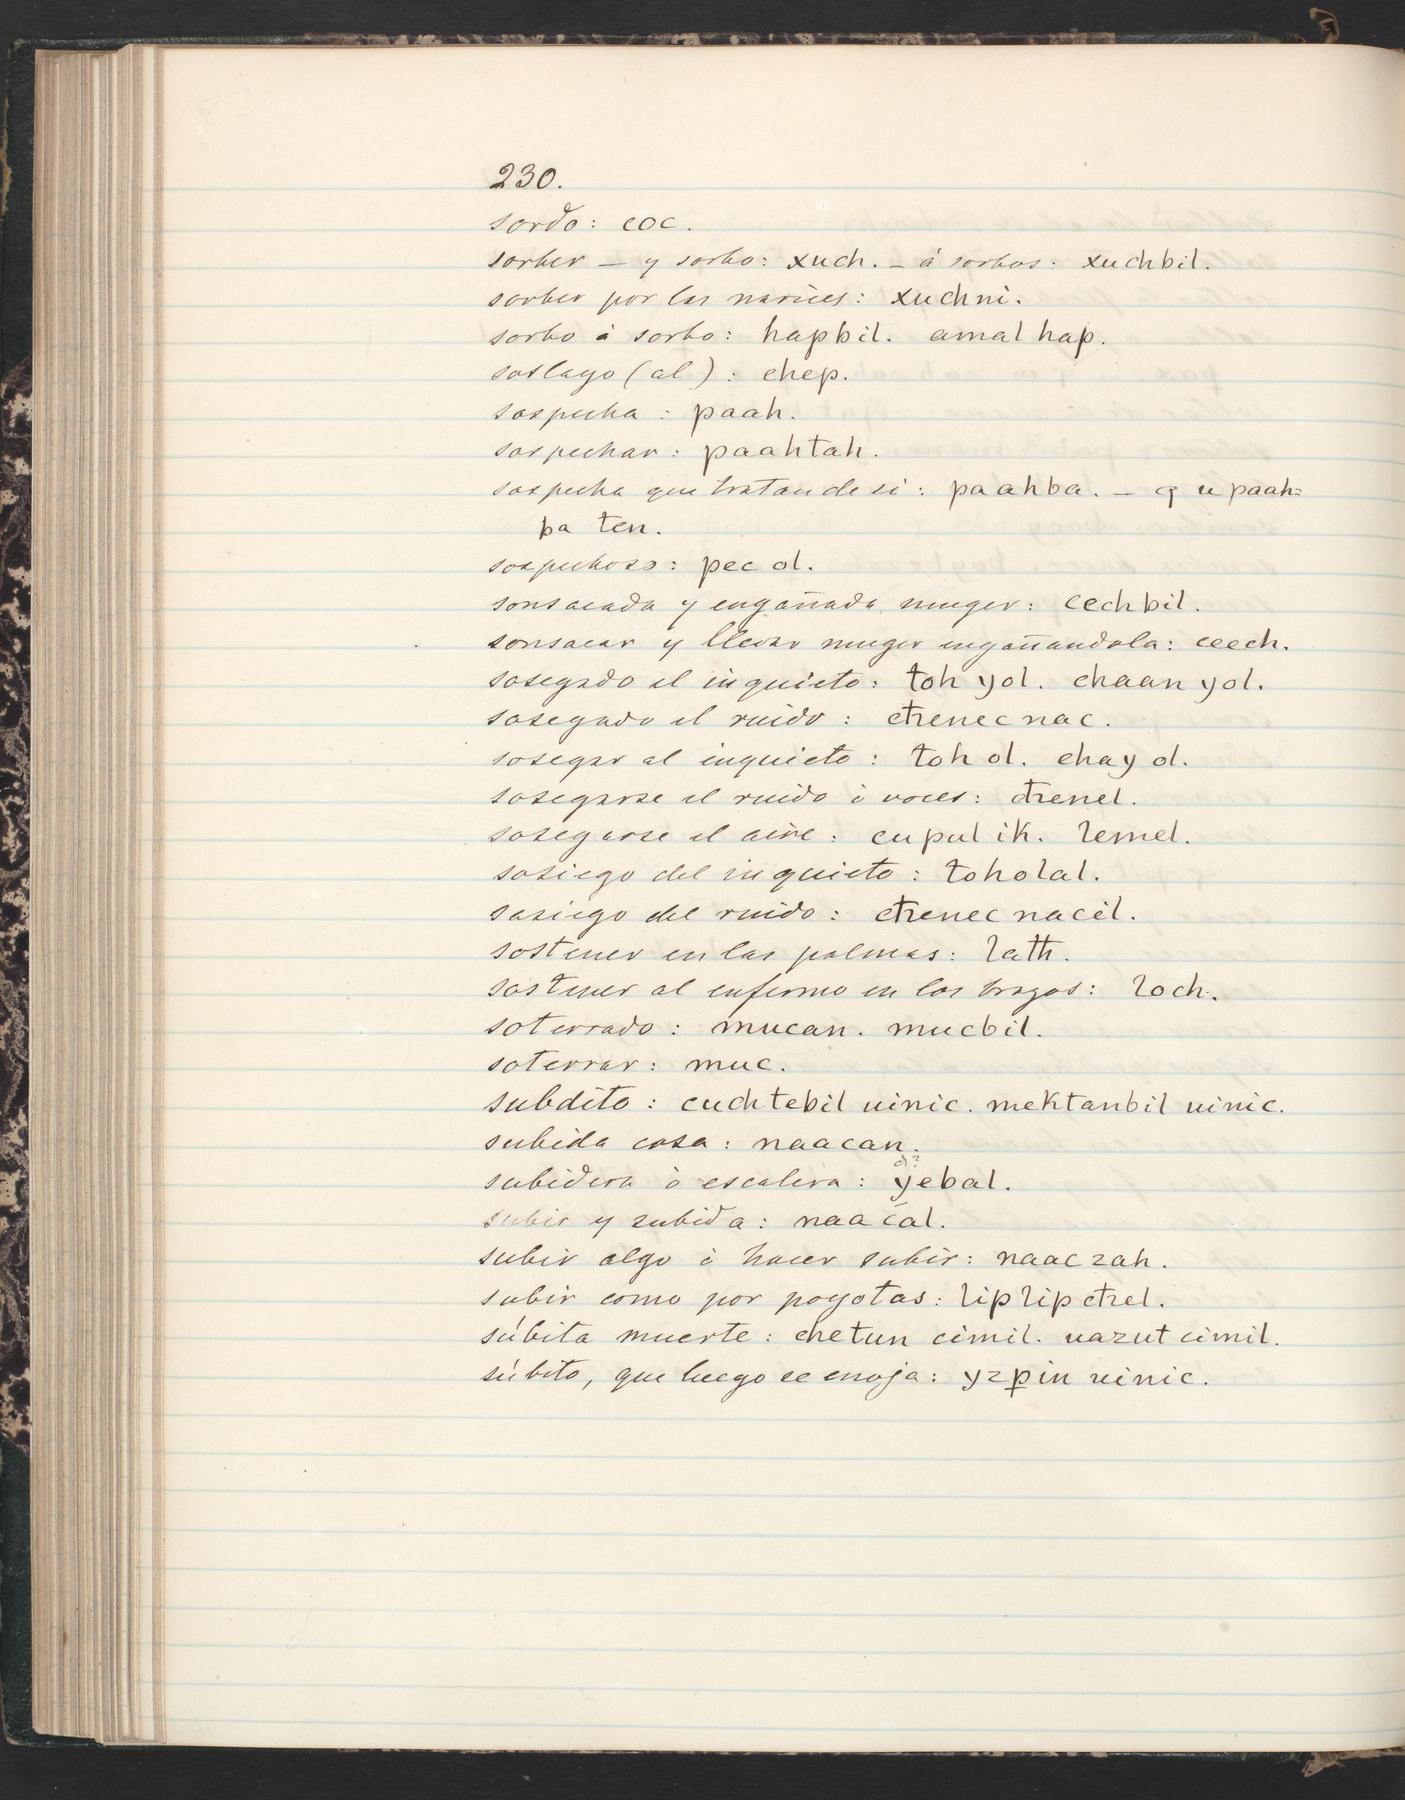 230.
sordo: coc.
sorber – y sorbo: xuch. – á sorbos: xuchbil.
sorber por las narices: xuchni.
sorbo á sorbo: hapbil. amal hap.
soslayo (al): chep.
sospecha: paah.
sospechar: paahtah.
sospecha que tratan de si: paahba. – q u paah=
ba ten.
sospechoso: pec ol.
sonsacada y engañada muger: cechbil.
sonsacar y llevar muger engañandola: ceech.
sosegado el inquieto: toh yol. chaan yol.
sosegado el ruido: cħenecnac.
sosegar al inquieto: toh ol. chay ol.
sosegarse el ruido ò voces: cħenel.
sosegarse el aire: cupul ik. lemel.
sosiego del inquieto: toholal.
sosiego del ruido: cħenec nacil.
sostener en las palmas: latħ.
sostener al enfermo en los brazos: loch.
soterrado: mucan. mucbil.
soterrar: muc.
subdito: cuchtebil uinic. mektanbil uinic.
subida cosa: naacan.
subidera ò escalera: yebal.
subir y subida: naacal.
subir algo ò hacer subir: naaczah.
subir como por poyotas: liplipcħel.
súbita muerte: chetun cimil. uazut cimil.
súbito, que luego se enoja: yzpin uinic.